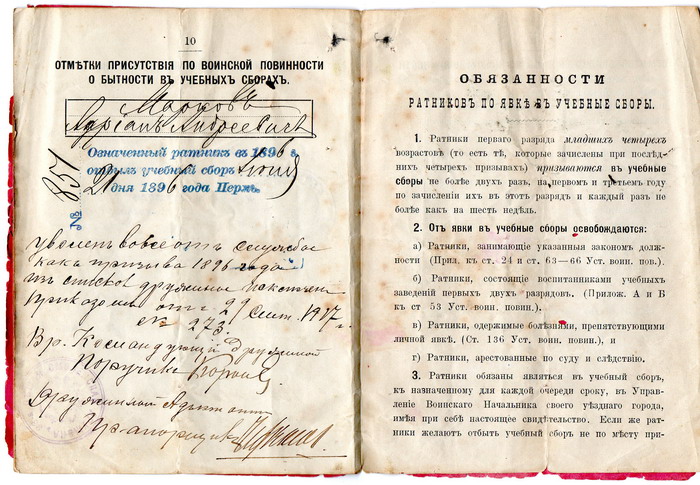 10
ОТМѢТКИ ПРИСУТСТВІЯ ПО ВОИНСКОЙ ПОВИННОСТИ
О БЫТНОСТИ ВЪ УЧЕБНЫХЪ СБОРАХЪ.
Марковъ
Адріанъ Андреевичъ
Означенный ратник въ 1896 г.
отбылъ учебный сборъ Іюня
21 дня 1896 года Пермь.
№ 851
уволенъ вовсе отъ службы
какъ призыва 1896 года
изъ списковъ дружины исключенъ
Приказомъ отъ 29 Сент. 1917 г.
за № 273.
Вр. Командующій Дружиной
Поручикъ
Дружинный Адъютантъ
Прапорщикъ
ОБЯЗАННОСТИ
РАТНИКОВЪ ПО ЯВКѢ ВЪ УЧЕБНЫЕ СБОРЫ.
1. Ратники перваго разряда младшихъ четырехъ
возрастовъ (то есть тѣ, которые зачислены при послѣд-
нихъ четырехъ призывахъ) призываются въ учебные
сборы не болѣе двухъ разъ, на первомъ и третьемъ году
по зачисленіи ихъ въ этотъ разрядъ и каждый разъ не
болѣе какъ на шесть недѣль.
2. Отъ явки въ учебные сборы освобождаются:
а) Ратники, занимающіе указанныя закономъ долж-
ности (Прил. къ ст. 24 и ст. 63—66 Уст. воин. пов.).
б) Ратники, состоящіе воспитанниками учебныхъ
заведеній первыхъ двухъ разрядовъ. (Прилож. А и Б
къ ст 53 Уст. воин. повин.).
в) Ратники, одержимые болѣзнями, препятствующими
личной явкѣ. (Ст. 136 Уст. воин. повин.), и
г) Ратники, арестованные по суду и слѣдствію.
3. Ратники обязаны являться въ учебный сборъ,
къ назначенному для каждой очереди сроку, въ Управ-
леніе Воинскаго Начальника своего уѣзднаго города,
имѣя при себѣ настоящее свидѣтельство. Если же рат-
ники желаютъ отбыть учебный сборъ не по мѣсту при-